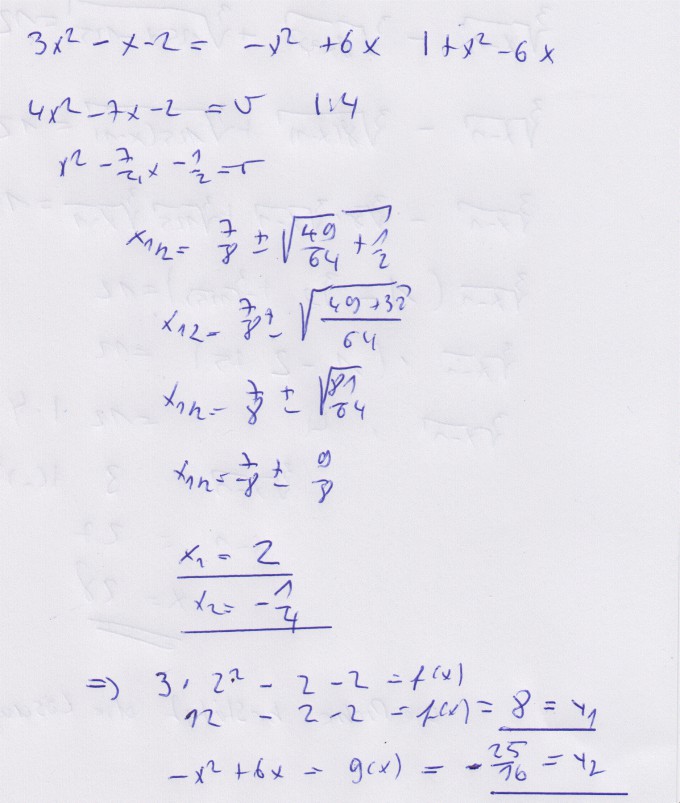 3x² - x - 2 = -x² + 6x | + x² - 6x
4x² - 7x - 2 = 0 | : 4
x² - 7/4 x - 1/2 = 0
x₁/₂ = 7/8 ± √(49/64 + 1/2)
x₁/₂ = 7/8 ± √((49 + 32)/64)
x₁/₂ = 7/8 ± √(81/64)
x₁/₂ = 7/8 ± 9/8
x₁ = 2
x₂ = -1/4
=> 3 · 2² - 2 - 2 = f(x)
12 - 2 - 2 = f(x) = 8 = y₁
-x² + 6x = g(x) = -25/16 = y₂